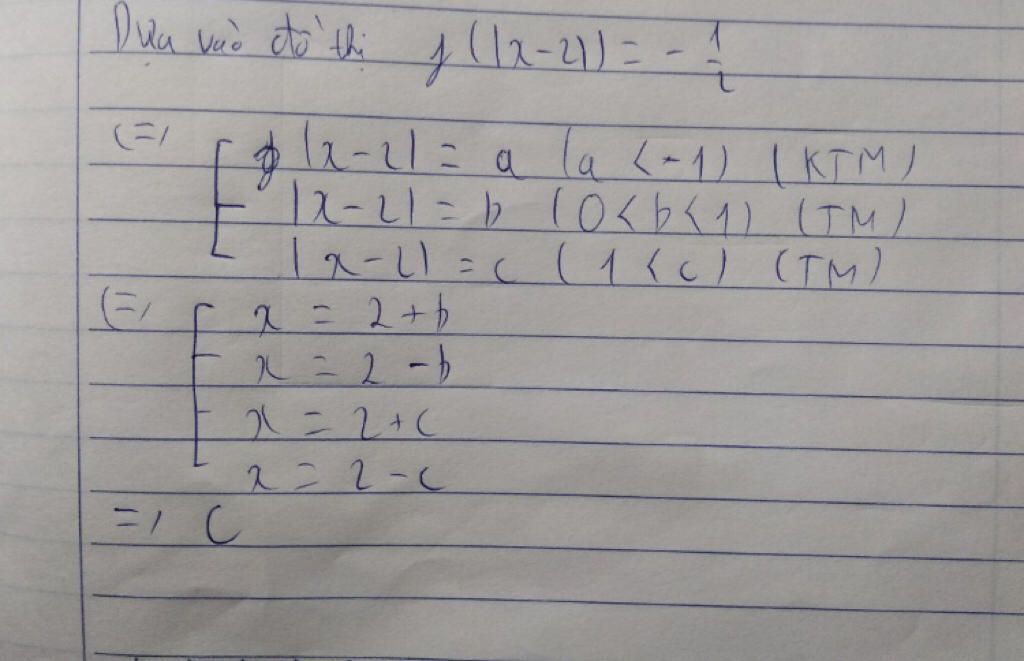 Dựa vào đồ thị f(|x-2|) = -1/2
<=> |x-2| = a (a < -1) (KTM)
|x-2| = b (0<b<1) (TM)
|x-2| = c (1<c) (TM)
<=> x = 2+b
x = 2-b
x = 2+c
x = 2-c
=> C